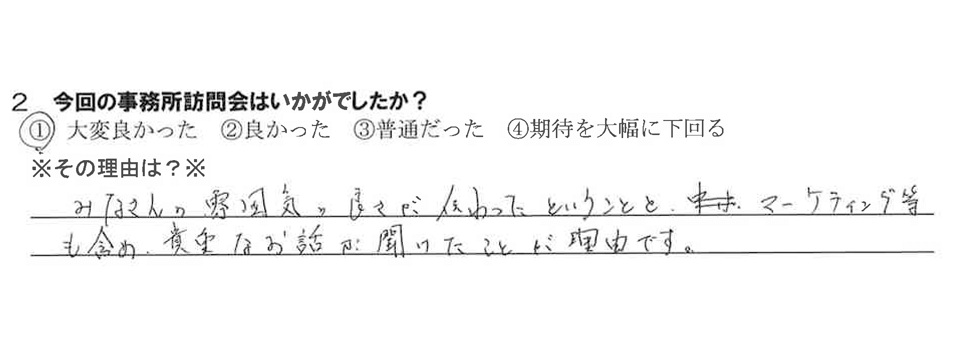 2 今回の事務所訪問会はいかがでしたか？
① 大変良かった ②良かった ③普通だった ④期待を大幅に下回る
※その理由は？※
みなさんの雰囲気の良さが伝わったということと、マーケティング等
も含め、貴重なお話が聞けたことが理由です。